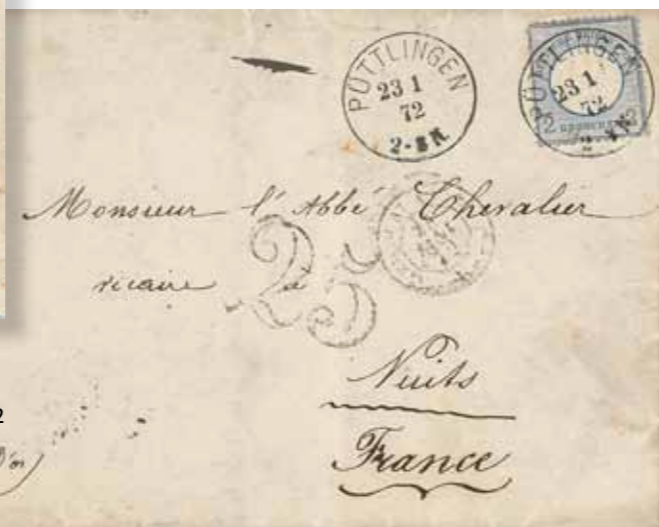 PÜTTLINGEN
23 1
72
2-3N.
PÜTTLINGEN
23 1
72
2
2 GROSCHEN 2
Monsieur l'Abbé Chevalier
vicaire à
25
Nuits
France
2
D'or)